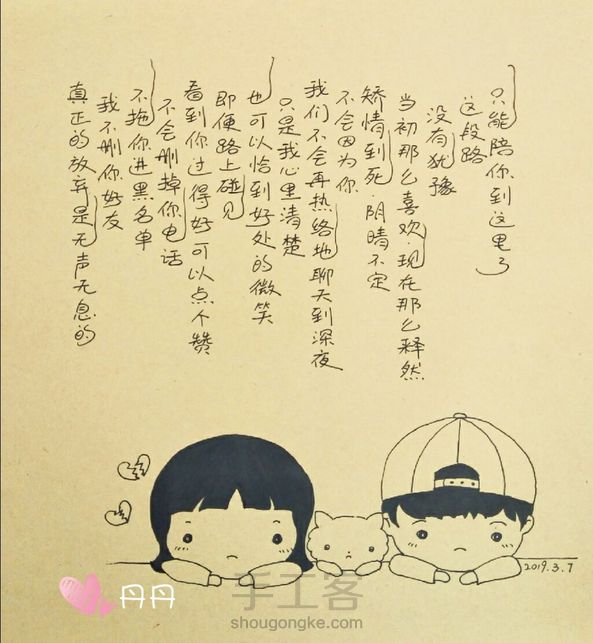 真正的放弃是无声无息的
我不删你好友
不拖你进黑名单
不会删掉你电话
看到你过得好可以点个赞
即便路上碰见
也可以恰到好处的微笑
只是我心里清楚
我们不会再热络地聊天到深夜
不会因为你
矫情到死.阴晴不定
当初那么喜欢.现在那么释然
没有犹豫
这段路
只能陪你到这里了
2019.3.7
丹丹
手工客
shougongke.com